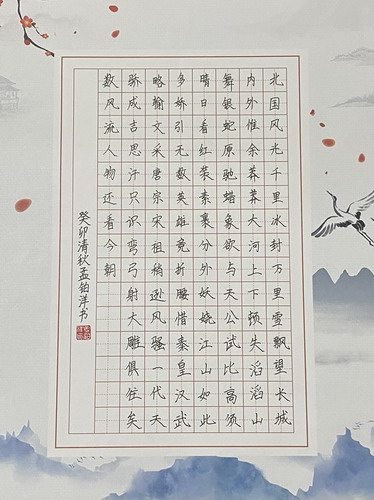 北国风光千里冰封万里雪飘望长城
内外惟余莽莽大河上下顿失滔滔山
舞银蛇原驰蜡象欲与天公试比高须
晴日看红装素裹分外妖娆江山如此
多娇引无数英雄竞折腰惜秦皇汉武
略输文采唐宗宋祖稍逊风骚一代天
骄成吉思汗只识弯弓射大雕俱往矣
数风流人物还看今朝
癸卯清秋孟铂洋书